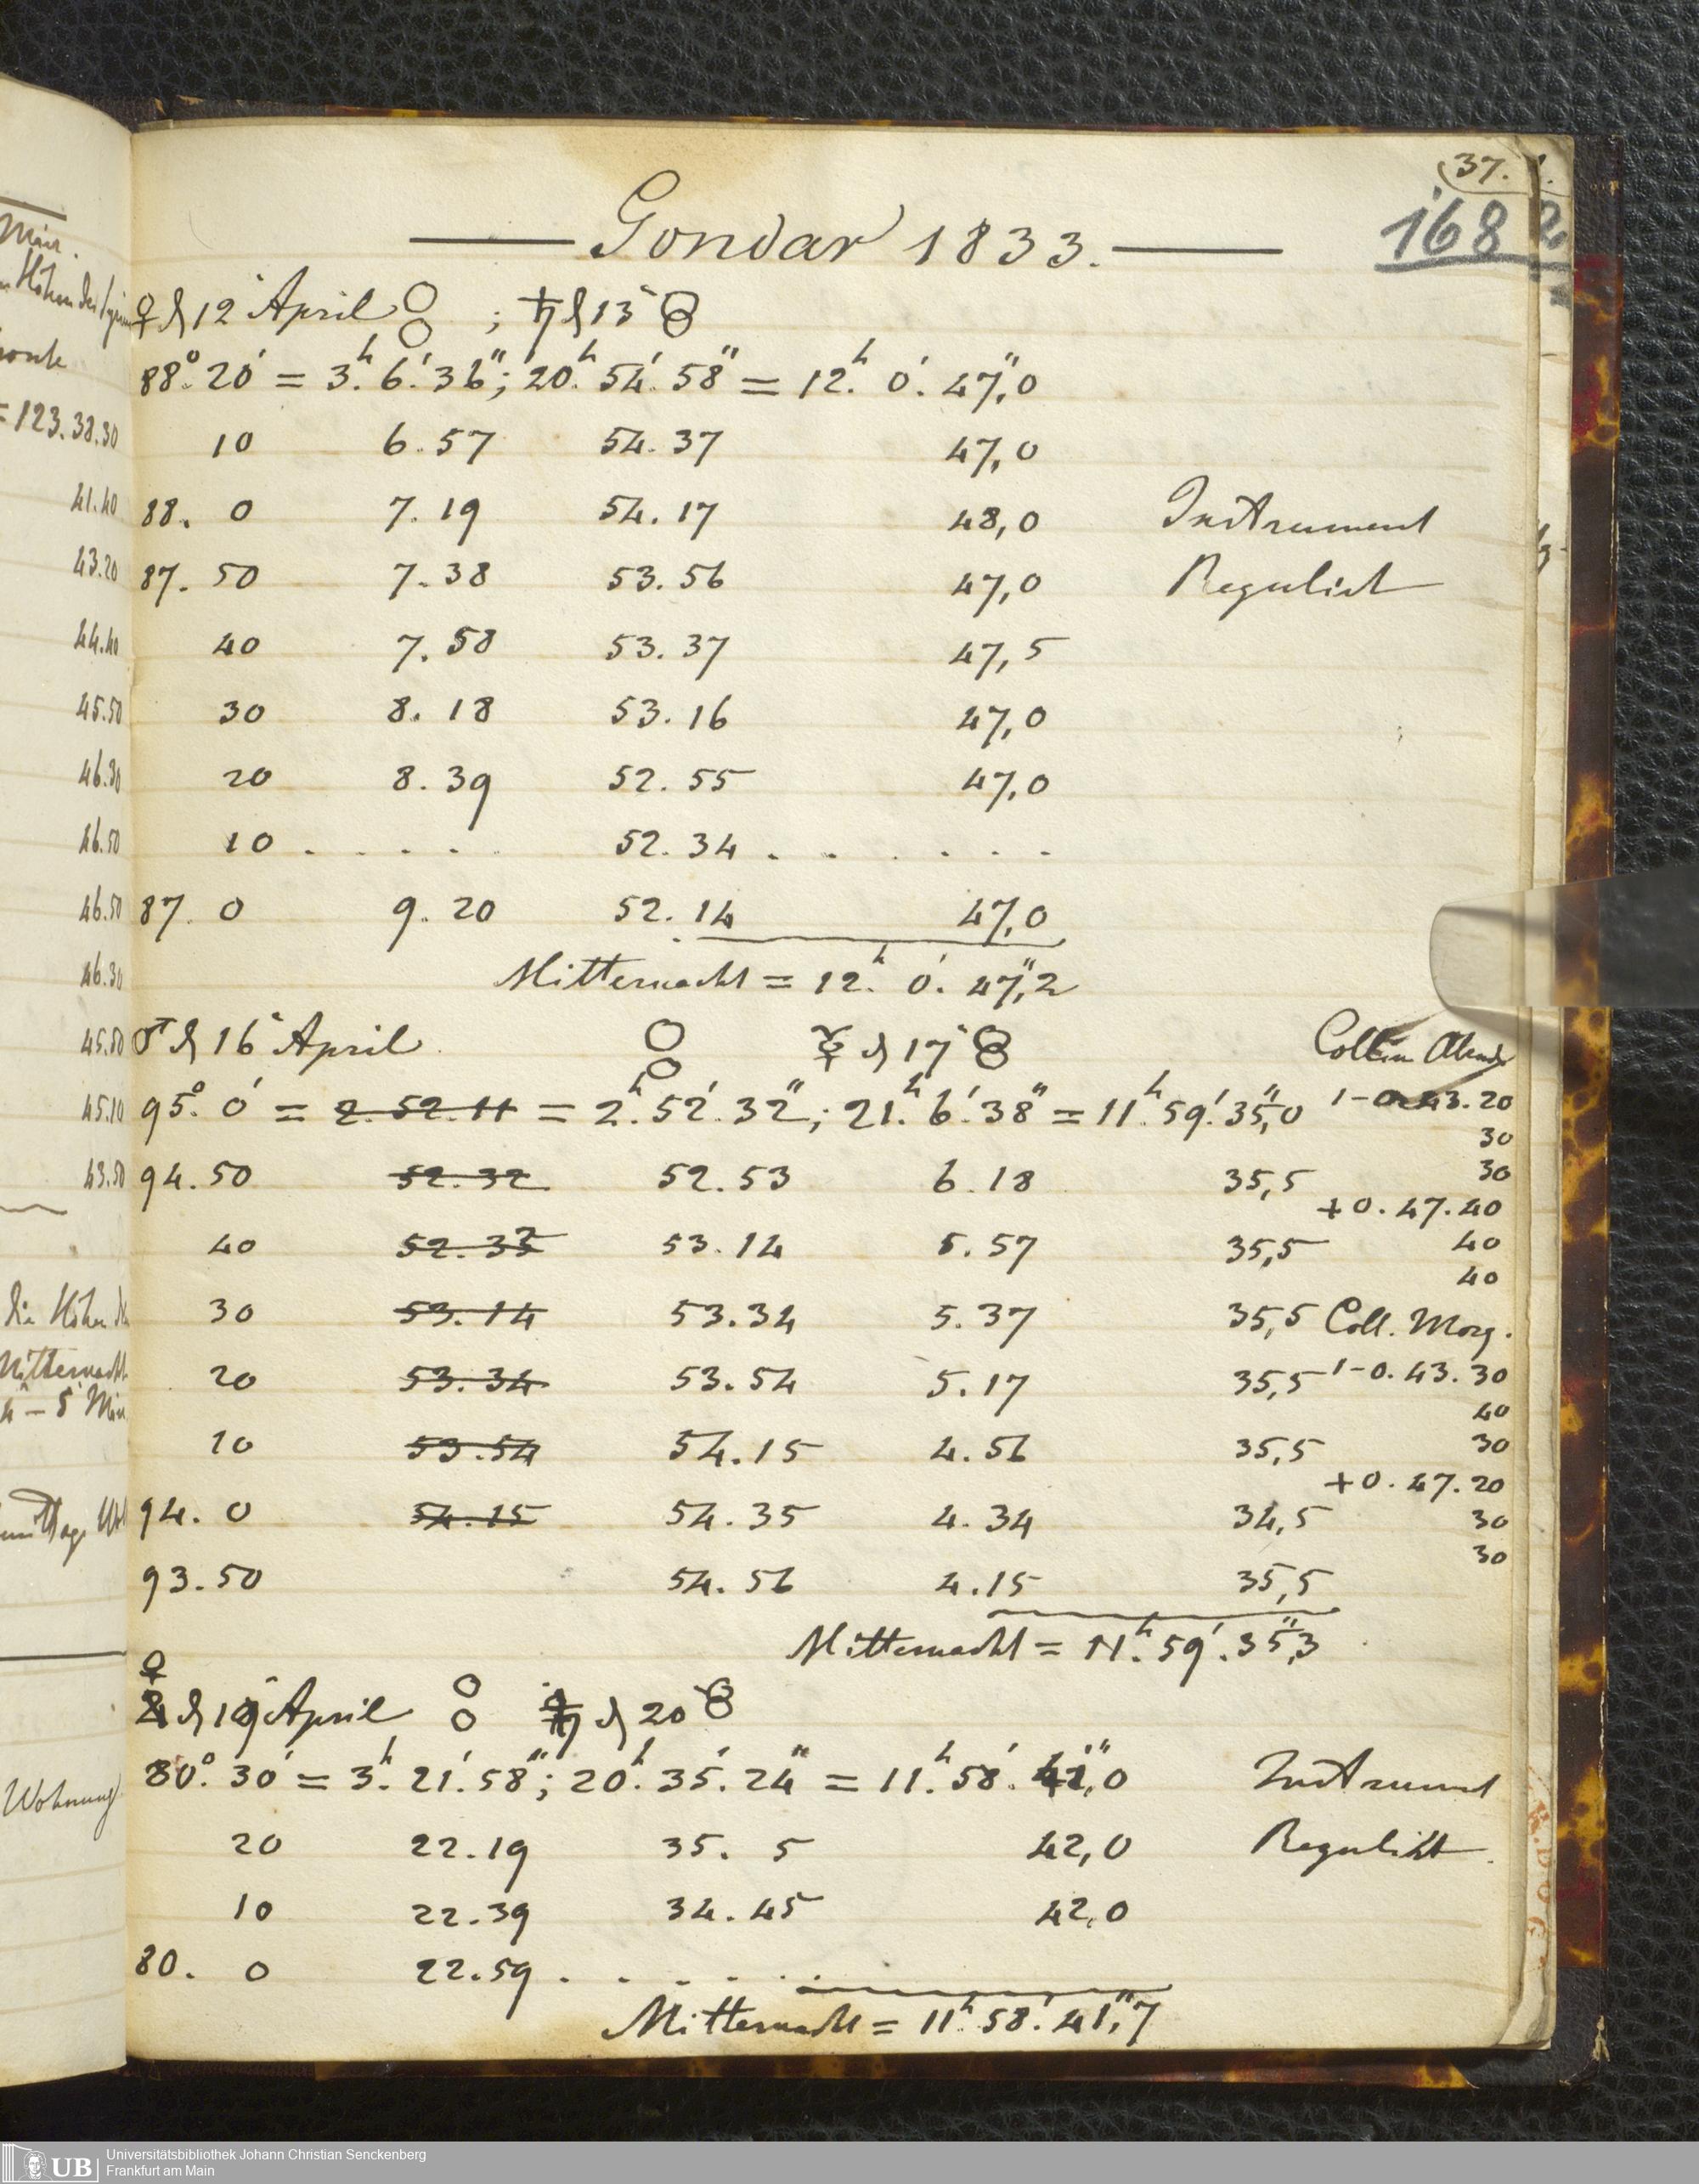 37.
168
Gondar 1833.
♀ d 12 April ; ♄ d 13
88°. 20' = 3h. 6'. 36"; 20h. 54'. 58" = 12h. 0'. 47",0
10 6. 57 54. 37 47,0
88. 0 7. 19 54. 17 48,0 Instrument
87. 50 7. 38 53. 56 47,0 Regulirt
40 7. 58 53. 37 47,5
30 8. 18 53. 16 47,0
20 8. 39 52. 55 47,0
10 . . . . 52. 34 . . . . . .
87. 0 9. 20 52. 14 47,0
Mitternacht = 12h. 0'. 47",2
♂ d 16 April ☿ d 17 Collim Abends
95°. 0' = 2. 52. 11 = 2h. 52'. 32"; 21h. 6'. 38" = 11h. 59'. 35",0 1-0. 43. 20
30
94. 50 52. 32 52. 53 6. 18 35,5 30
+0. 47. 40
40 52. 33 53. 14 5. 57 35,5 40
40
30 53. 14 53. 34 5. 37 35,5 Coll. Morg.
20 53. 34 53. 54 5. 17 35,5 1-0. 43. 30
40
10 53. 54 54. 15 4. 56 35,5 30
+0. 47. 20
94. 0 54. 15 54. 35 4. 34 34,5 30
30
93. 50 54. 56 4. 15 35,5
Mitternacht = 11h. 59'. 35",3
♀
d 19 April ♄ d 20
80°. 30' = 3h. 21'. 58"; 20h. 35'. 24" = 11h. 58'. 41",0 Instrument
20 22. 19 35. 5 42,0 Regulirt
10 22. 39 34. 45 42,0
80. 0 22. 59 . . . . . .
Mitternacht = 11h. 58'. 41",7
123. 38. 30
41. 40
43. 20
44. 40
45. 50
46. 30
46. 50
46. 50
46. 30
45. 50
45. 10
43. 50
die Höhen
Mitternacht
Wohnung
UB
Universitätsbibliothek Johann Christian Senckenberg
Frankfurt am Main